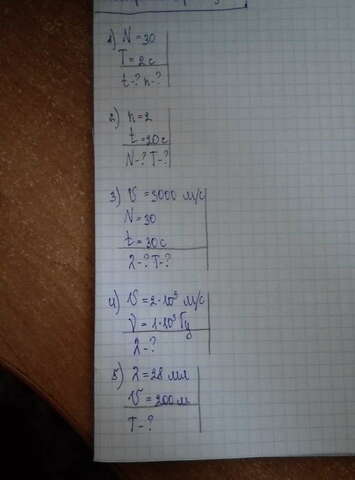 1) N = 30
T = 2 с
t - ? n - ?
2) n = 2
t = 20 с
N - ? T - ?
3) V = 3000 м/с
N = 30
t = 30 с
λ - ? T - ?
4) V = 2·10³ м/с
ν = 1·10³ Гц
λ - ?
5) λ = 28 мм
V = 200 м
T - ?